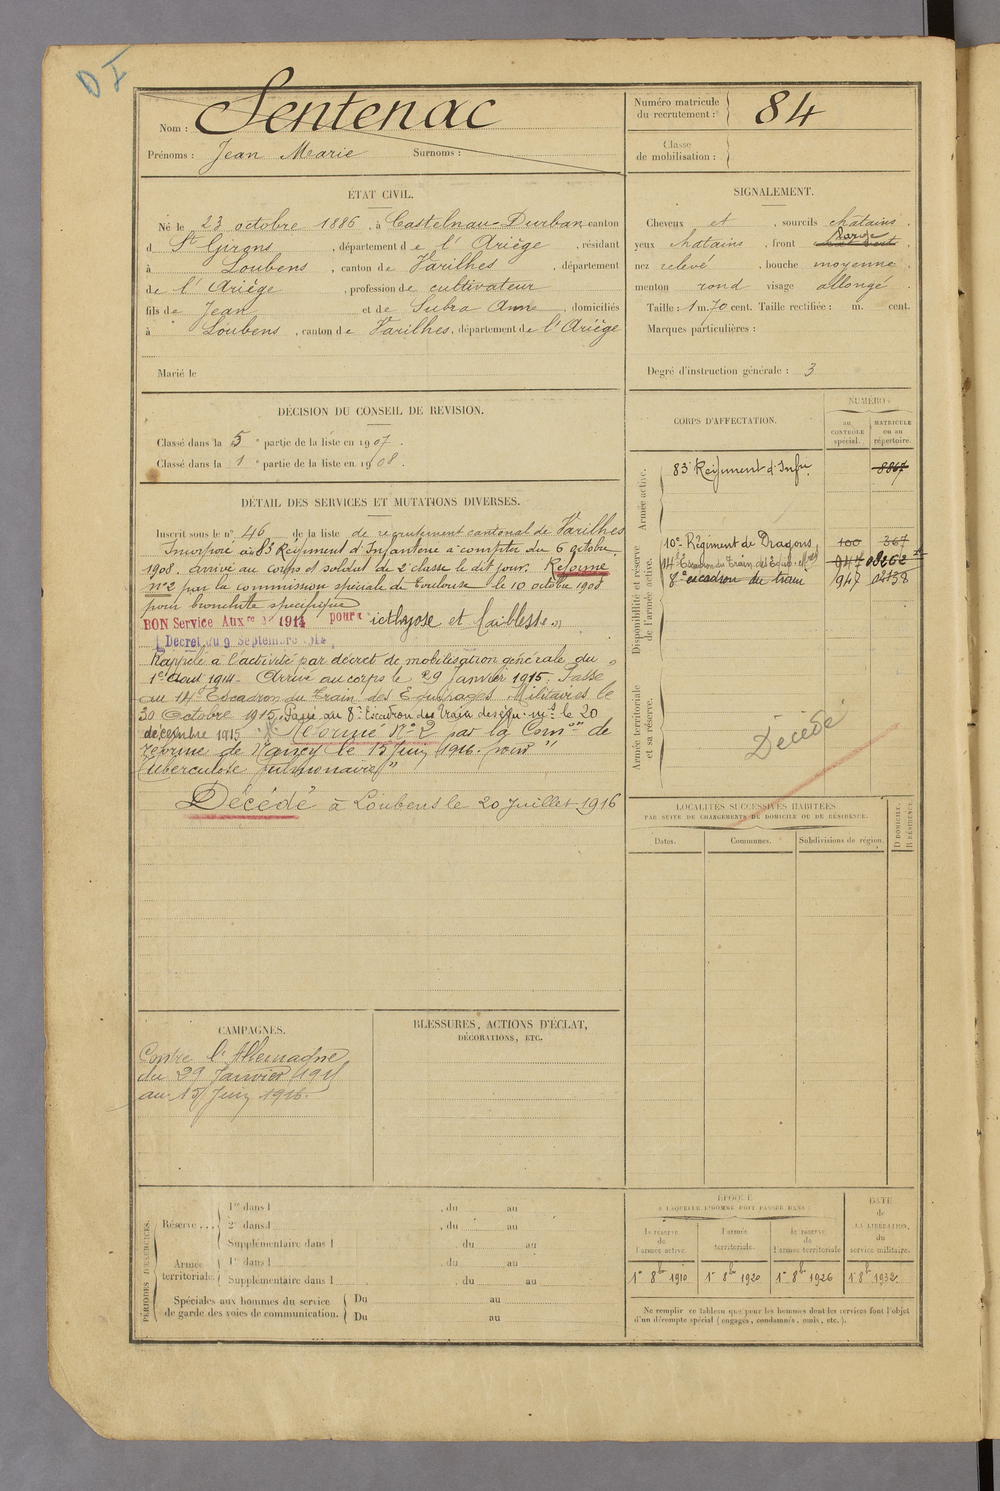 D I
Nom : Sentenac
Prénoms : Jean Marie Surnoms :
Numéro matricule
du recrutement : 84
Classe
de mobilisation :
ÉTAT CIVIL.
Né le 23 octobre 1886, à Castelnau-Durban canton
d St Girons, département de l'Ariège, résidant
à Loubens, canton de Varilhes, département
de l'Ariège, profession de cultivateur
fils de Jean et de Subra Anne, domiciliés
à Loubens, canton de Varilhes, département de l'Ariège
Marié le
SIGNALEMENT.
Cheveux et, sourcils chatains.
yeux chatains, front large
nez relevé, bouche moyenne.
menton rond visage allongé.
Taille : 1 m. 70 cent. Taille rectifiée : m. cent.
Marques particulières :
Degré d'instruction générale : 3
DÉCISION DU CONSEIL DE REVISION.
Classé dans la 5e partie de la liste en 1907.
Classé dans la 1e partie de la liste en 1908.
DÉTAIL DES SERVICES ET MUTATIONS DIVERSES.
Inscrit sous le no 46 de la liste de recrutement cantonal de Varilhes
Incorporé au 83e Régiment d'Infanterie à compter du 6 octobre
1908. arrivé au corps et soldat de 2e classe le dit jour. Réformé
no 2 par la commission spéciale de Toulouse le 10 octobre 1908
pour bronchite spécifique
BON Service Auxre 1914 pour icthyose et faiblesse
Décret du 9 Septembre 1914
Rappelé à l'activité par décret de mobilisation générale du
1er Aout 1914. Arrivé au corps le 29 Janvier 1915. Passé
au 14e Escadron du Train des Equipages Militaires le
30 Octobre 1915. Passé au 8e Escadron du Train des équ. mres le 20
décembre 1915 Réformé No 2 par la Comon de
réforme de Nancy le 15 Juin 1916. pour "
Tuberculose pulmonaire"
Décédé à Loubens le 20 Juillet 1916
CORPS D'AFFECTATION.
NUMÉROS
au
CONTRÔLE
spécial.
MATRICULE
ou au
répertoire.
Armée active.
83e Régiment d'Infie 8867
Disponibilité et réserve
de l'armée active.
10e Régiment de Dragons 100 367
14e Escadron du Train des Equip. Mres 08262
8e escadron du train 947 02138
Armée territoriale
et sa réserve.
Décédé
LOCALITÉS SUCCESSIVES HABITÉES
PAR SUITE DE CHANGEMENTS DE DOMICILE OU DE RÉSIDENCE.
Dates.
Communes.
Subdivisions de région.
D DOMICILE.
R RÉSIDENCE.
CAMPAGNES.
Contre l'Allemagne
du 29 Janvier 1915
au 15 Juin 1916.
BLESSURES, ACTIONS D'ÉCLAT,
DÉCORATIONS, ETC.
PÉRIODES D'EXERCICES.
Réserve ... 1re dans l , du au
2e dans l , du au
Supplémentaire dans l , du au
Armée
territoriale. 1re dans l , du au
Supplémentaire dans l , du au
Spéciales aux hommes du service
de garde des voies de communication. Du au
Du au
ÉPOQUE
À LAQUELLE L'HOMME DOIT PASSER DANS :
la réserve
de
l'armée active.
l'armée
territoriale.
la réserve
de
l'armée territoriale
DATE
de
LA LIBÉRATION
du
service militaire.
1er 8bre 1910 1er 8bre 1920 1er 8bre 1926 1er 8bre 1932
Ne remplir ce tableau que pour les hommes dont les services font l'objet
d'un décompte spécial (engagés, condamnés, omis, etc.).